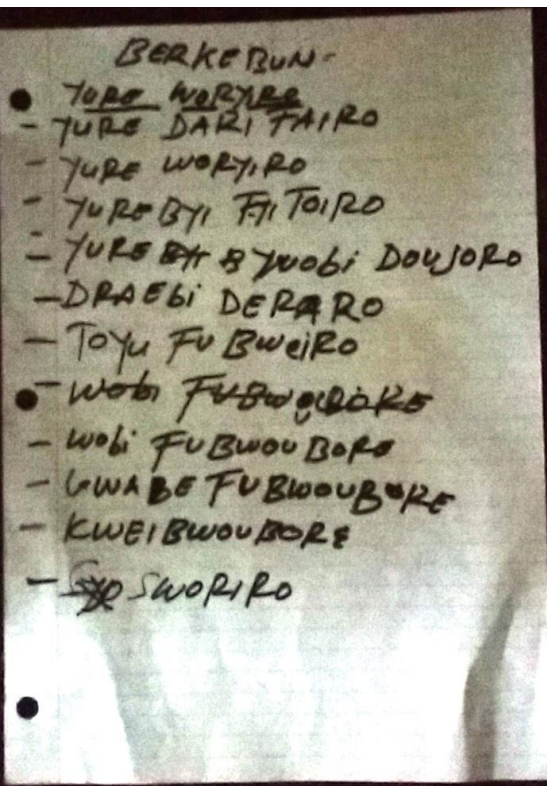 BERKEBUN-
YURE WORYIRO
- YURE DARI FAIRO
- YURE WORYIRO
- YURE BYI FYI TOIRO
- YURE BYWOBI DOUJORO
- DRAEBI DERARO
- TOYU FUBWEIRO
- WOBI
- WOBI FUBWOUBORE
- GWABE FUBWOUBORE
- KWEIBWOUBORE
- SWORIRO